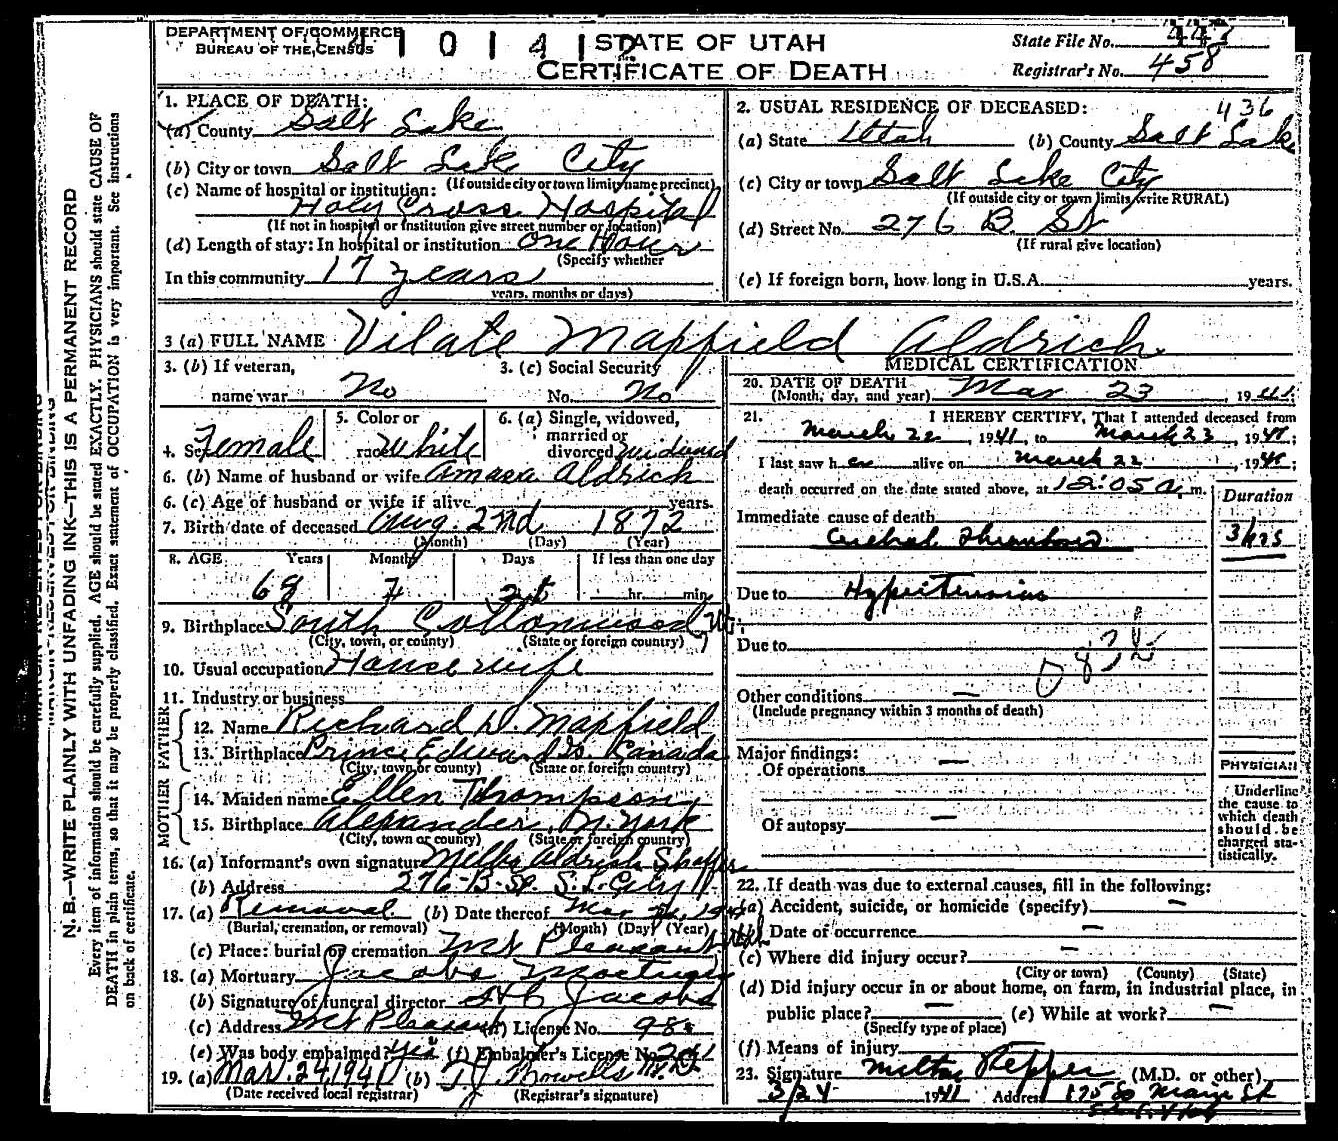 DEPARTMENT OF COMMERCE
BUREAU OF THE CENSUS
STATE OF UTAH
CERTIFICATE OF DEATH
State File No.
Registrar's No. 458
1. PLACE OF DEATH:
(a) County Salt Lake
(b) City or town Salt Lake City
(If outside city or town limits, name precinct)
(c) Name of hospital or institution:
Holy Cross Hospital
(If not in hospital or institution give street number or location)
(d) Length of stay: In hospital or institution one Hour
(Specify whether
In this community 17 years
years, months or days)
2. USUAL RESIDENCE OF DECEASED: 436
(a) State Utah (b) County Salt Lake
(c) City or town Salt Lake City
(If outside city or town limits, write RURAL)
(d) Street No. 276 B. St
(If rural give location)
(e) If foreign born, how long in U.S.A. years.
3 (a) FULL NAME Vilate Maxfield Aldrich
3. (b) If veteran, name war No
3. (c) Social Security No. No
4. Sex Female
5. Color or race White
6. (a) Single, widowed, married or divorced Widowed
6. (b) Name of husband or wife Amasa Aldrich
6. (c) Age of husband or wife if alive years.
7. Birth date of deceased Aug. 22nd 1872
(Month) (Day) (Year)
8. AGE Years Months Days If less than one day
68 7 hr. min.
9. Birthplace South Cottonwood
(City, town, or county) (State or foreign country)
10. Usual occupation Housewife
11. Industry or business
FATHER
12. Name Richard D. Maxfield
13. Birthplace Prince Edward Is. Canada
(City, town or county) (State or foreign country)
MOTHER
14. Maiden name Ellen Thompson
15. Birthplace Alexander, N. York
(City, town or county) (State or foreign country)
16. (a) Informant's own signature Melba Aldrich
(b) Address 276-B-St. S. L. City
17. (a) Removal (b) Date thereof Mar
(Burial, cremation, or removal) (Month) (Day) (Year)
(c) Place: burial or cremation Mt Pleasant Utah
18. (a) Mortuary Jacobs Mortuary
(b) Signature of funeral director Jacobs
(c) Address Mt Pleasant (d) License No. 98
(e) Was body embalmed? yes (f) Embalmer's License No. 241
19. (a) Mar. 24, 1941 (b) T J Howells M.D.
(Date received local registrar) (Registrar's signature)
MEDICAL CERTIFICATION
20. DATE OF DEATH
(Month, day, and year) Mar 23, 1941
21. I HEREBY CERTIFY, That I attended deceased from
March 22, 1941, to March 23, 1941;
I last saw her alive on March 22, 1941;
death occurred on the date stated above, at 12:05 a. m.
Duration
Immediate cause of death
Cerebral Thrombosis 3 hrs
Due to Hypertension
Due to
Other conditions —
(Include pregnancy within 3 months of death)
Major findings:
Of operations —
Of autopsy —
PHYSICIAN
Underline
the cause to
which death
should be
charged sta-
tistically.
22. If death was due to external causes, fill in the following:
(a) Accident, suicide, or homicide (specify) —
(b) Date of occurrence —
(c) Where did injury occur? —
(City or town) (County) (State)
(d) Did injury occur in or about home, on farm, in industrial place, in
public place? — (e) While at work? —
(Specify type of place)
(f) Means of injury
23. Signature Milton Pepper (M.D. or other)
3/24 1941 Address 175 So Main St
N. B.—WRITE PLAINLY WITH UNFADING INK—THIS IS A PERMANENT RECORD
Every item of information should be carefully supplied. AGE should be stated EXACTLY. PHYSICIANS should state CAUSE OF
DEATH in plain terms, so that it may be properly classified. Exact statement of OCCUPATION is very important. See instructions
on back of certificate.